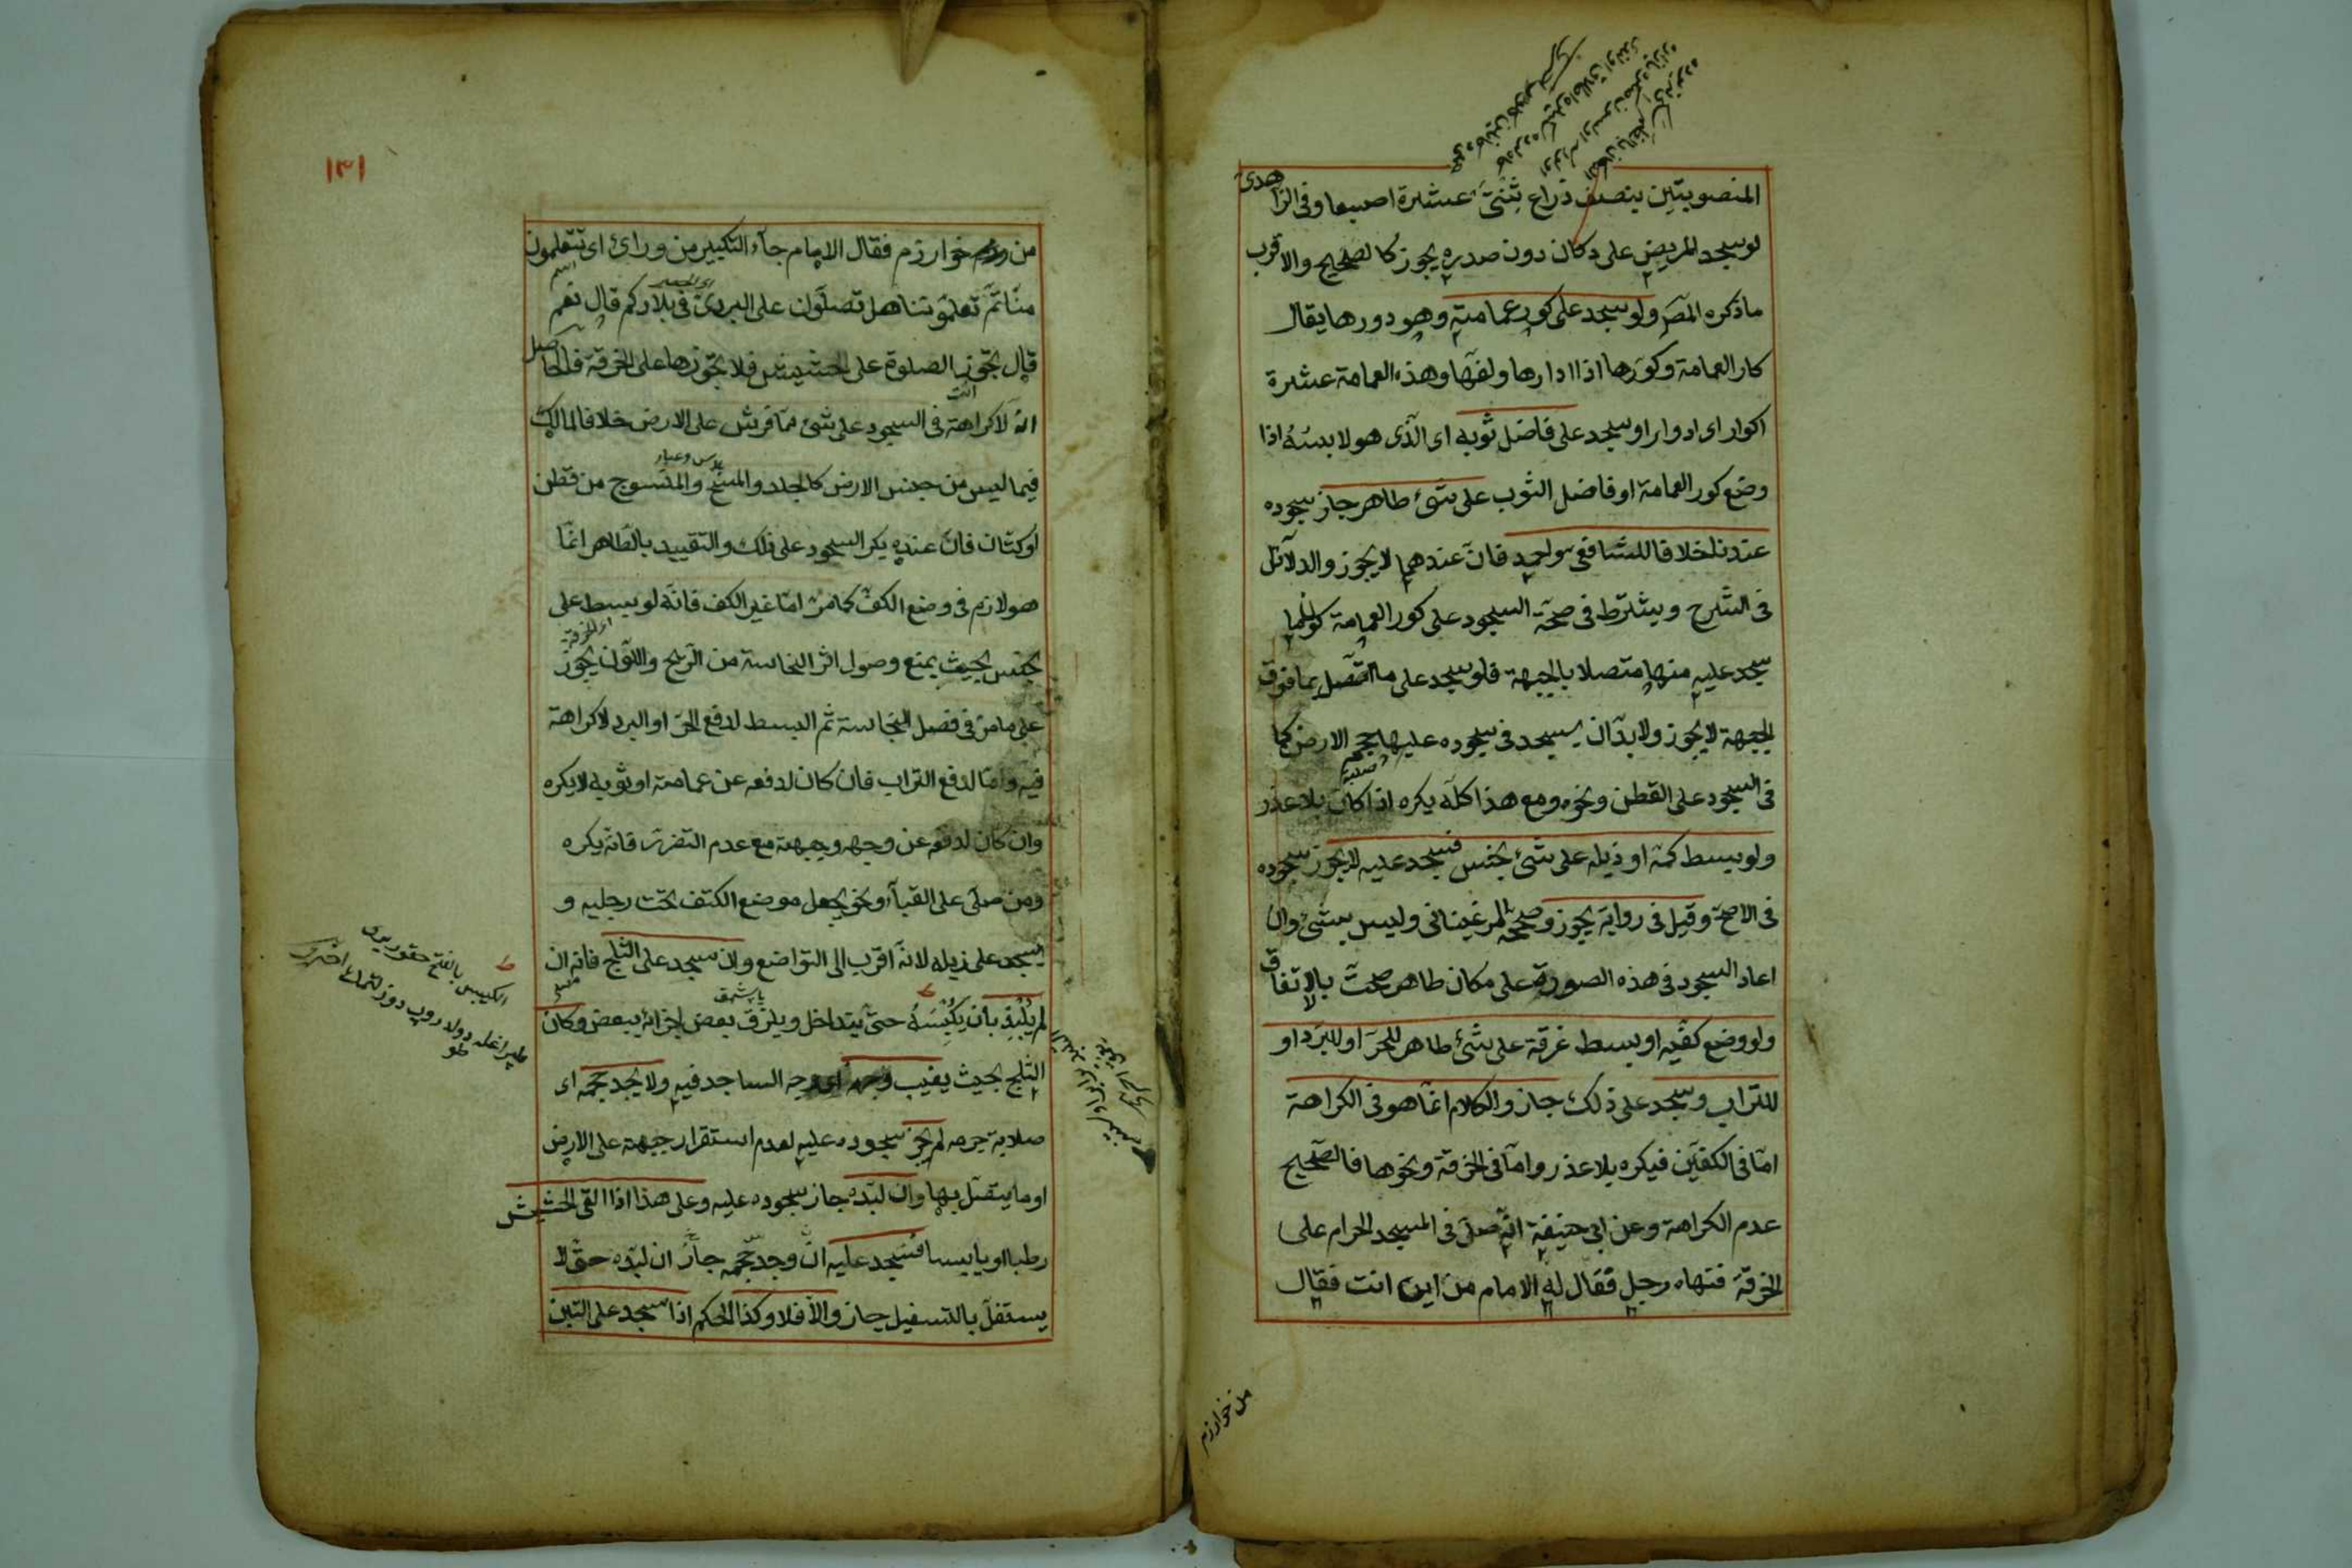 المنصوبتين بنصف ذراع ثنتى عشرة اصبعا وفى الزاهدى
لو سجد المريض على دكان دون صدره يجوز كالصحيح والاقرب
ما ذكره المص ولو سجد على كور عمامته وهو دورها يقال
كار العمامة وكورها اذا ادارها ولفها وهذه العمامة عشرة
اكوار اى ادوار او سجد على فاضل ثوبه اى الذى هو لابسه اذا
وضع كور العمامة او فاضل الثوب على شئ طاهر جاز سجوده
عندنا خلافا للشافعى واحمد فان عندهما لا يجوز والدلائل
فى الشرح ويشترط فى صحة السجود على كور العمامة كون ما
سجد عليه منها متصلا بالجبهة فلو سجد على ما اتصل بما فوق
الجبهة لا يجوز ولا بد ان يسجد فى سجوده عليها حجم الارض كما
فى السجود على القطن ونحوه ومع هذا كله يكره اذا كان بلا عذر
ولو بسط كمه او ذيله على شئ نجس فسجد عليه لا يجوز سجوده
فى الاصح وقيل فى رواية يجوز وصححه المرغينانى وليس بشئ وان
اعاد السجود فى هذه الصورة على مكان طاهر صحت بالاتفاق
ولو وضع كفيه او بسط خرقة على شئ طاهر للحر او للبرد او
للتراب وسجد على ذلك جاز والكلام انما هو فى الكراهة
اما فى الكفين فيكره بلا عذر واما فى الخرقة ونحوها فالصحيح
عدم الكراهة وعن ابى حنيفة انه صلى فى المسجد الحرام على
الخرقة فنهاه رجل فقال له الامام من اين انت فقال
من خوارزم
١٣١
من خوارزم فقال الامام جاء التكبير من ورائ اى تتعلمون
منا ثم تعلموتنا هل تصلون على البردى فى بلادكم قال نعم
قال تجوز الصلوة على الحشيش فلا تجوزها على الخرقة فالحاصل
انه لا كراهة فى السجود على شئ مما فرش على الارض خلافا لمالك
فيما ليس من جنس الارض كالجلد والمسح والمنسوج من قطن
او كتان فان عنده يكره السجود على ذلك والتقييد بالطاهر انما
هو لازم فى وضع الكف كما مر اما غير الكف فانه لو بسط على
نجس بحيث يمنع وصول اثر النجاسة من الريح واللون يجوز
على ما مر فى فصل النجاسة ثم البسط لدفع الحر او البرد لا كراهة
فيه واما لدفع التراب فان كان لدفعه عن عمامته او ثوبه لا يكره
وان كان لدفعه عن وجهه وجبهته مع عدم التضرر فانه يكره
ومن صلى على القباء ونحوه يجعل موضع الكتف تحت رجليه و
يسجد على ذيله لانه اقرب الى التواضع وان سجد على الثلج فانه ان
لم يلبده بان يكبسه حتى يتداخل ويلزق بعض اجزائه ببعض وكان
الثلج بحيث يغيب وجهه اى وجه الساجد فيه ولا يجد حجمه اى
صلابة جرمه لم يجز سجوده عليه لعدم استقرار جبهته على الارض
او ما يتصل بها وان لبده جاز سجوده عليه وعلى هذا اذا القى الحشيش
رطبا او يابسا فسجد عليه ان وجد حجمه جاز ان لبده حتى لا
يستفل بالتسفيل جاز والا فلا وكذا الحكم اذا سجد على التبن